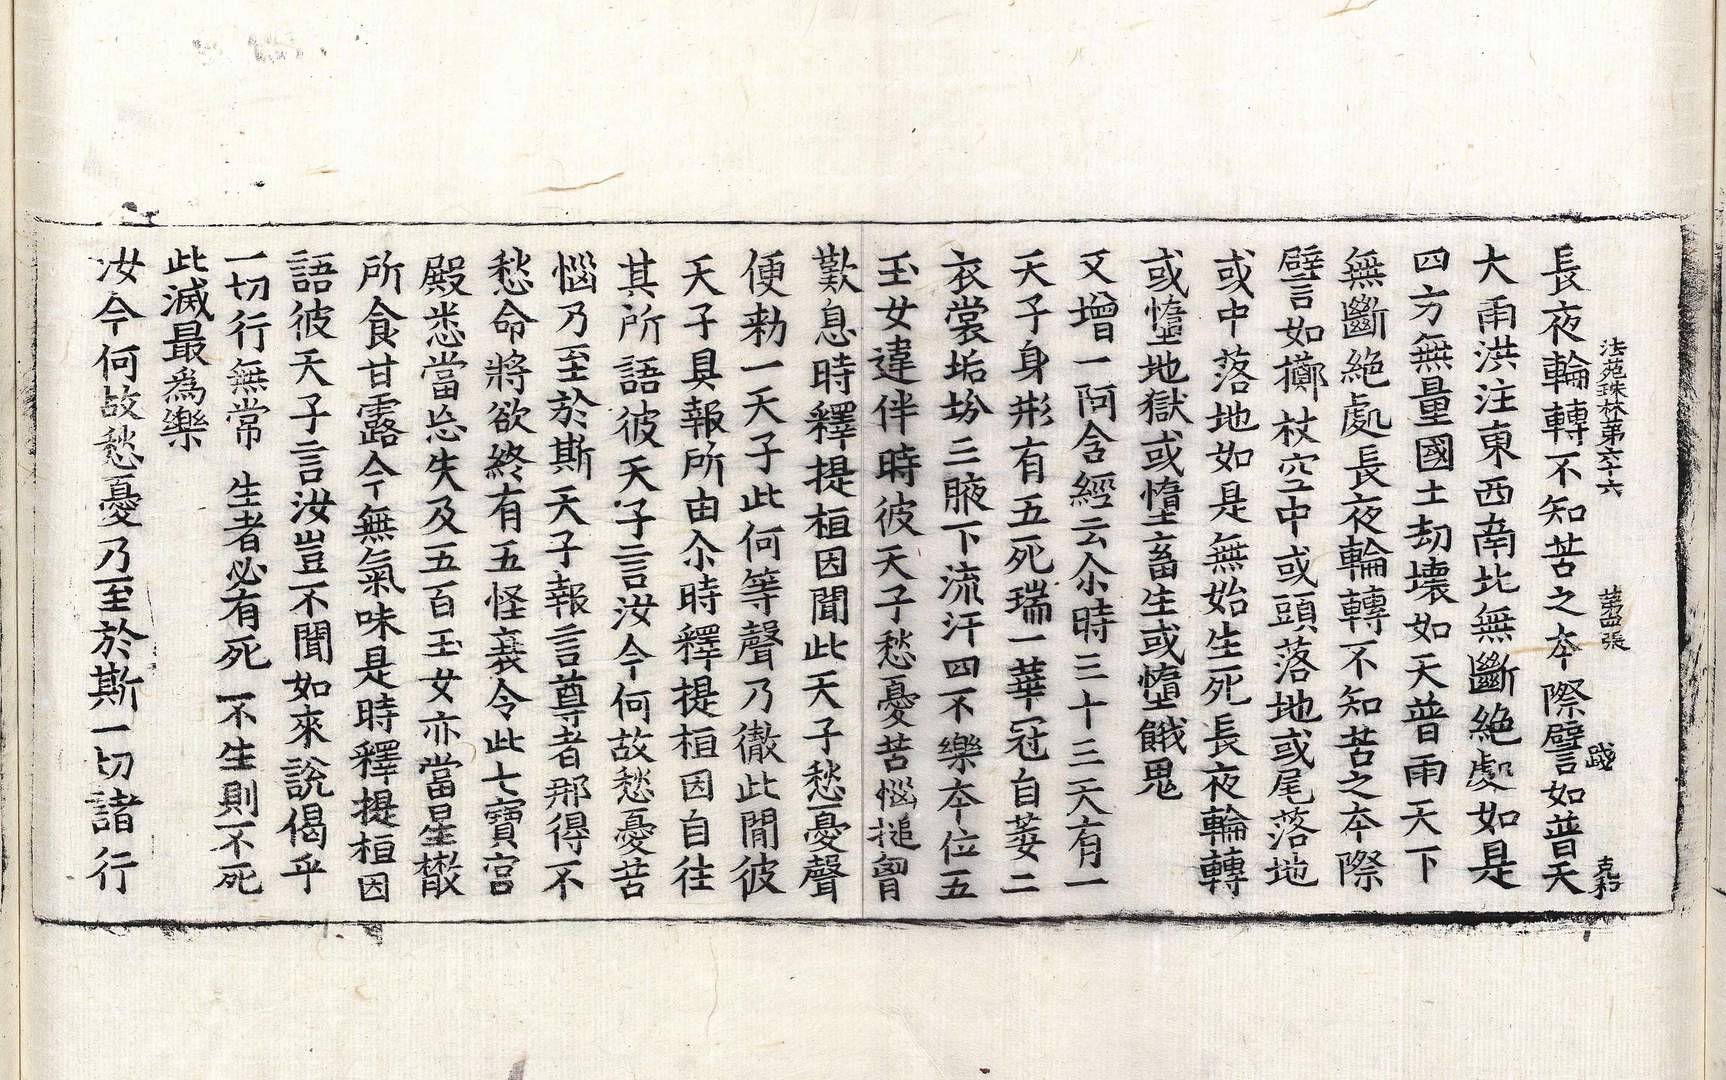 法苑珠林第六十六　第四張　䟦　克和
長夜輪轉不知苦之夲際譬言如普天
大雨洪注東西南北無斷絶處如是
四方無量國土劫壞如天普雨天下
無斷絶處長夜輪轉不知苦之夲際
譬言如擲杖空中或頭落地或尾落地
或中落地如是無始生死長夜輪轉
或墮地獄或墮畜生或墮餓鬼
又增一阿含經云尒時三十三天有一
天子身形有五死瑞一華冠自萎二
衣裳垢坋三腋下流汗四不樂夲位五
玉女違伴時彼天子愁憂苦惱搥胷
歎息時釋提桓因聞此天子愁憂聲
便勑一天子此何等聲乃徹此閒彼
天子具報所由尒時釋提桓因自往
其所語彼天子言汝今何故愁憂苦
惱乃至於斯天子報言尊者那得不
愁命將欲終有五怪衰令此七寶宫
殿悉當忘失及五百玉女亦當星散
所食甘露令無氣味是時釋提桓因
語彼天子言汝豈不聞如來說偈乎
一切行無常　生者必有死　不生則不死
此滅最為樂
汝今何故愁憂乃至於斯一切諸行